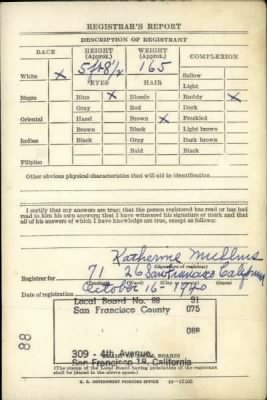 REGISTRAR'S REPORT
DESCRIPTION OF REGISTRANT
RACE HEIGHT (Approx.) WEIGHT (Approx.) COMPLEXION
5 ft 8 1/2 165
White X EYES HAIR Sallow
Light
Negro Blue X Blonde Ruddy X
Gray Red Dark
Oriental Hazel Brown X Freckled
Brown Black Light brown
Indian Black Gray Dark brown
Bald Black
Filipino
Other obvious physical characteristics that will aid in identification
I certify that my answers are true; that the person registered has read or has had
read to him his own answers; that I have witnessed his signature or mark and that
all of his answers of which I have knowledge are true, except as follows:
Katherine
(Signature of registrar)
Registrar for 71 26 San Francisco California
(Precinct) (Ward) (City or county) (State)
Date of registration October 16 - 1940
Local Board No. 88 91
San Francisco County 075
088
309 - 4th Avenue
San Francisco 18, California
(The stamp of the Local Board having jurisdiction of the registrant
shall be placed in the above space.)
U. S. GOVERNMENT PRINTING OFFICE
88